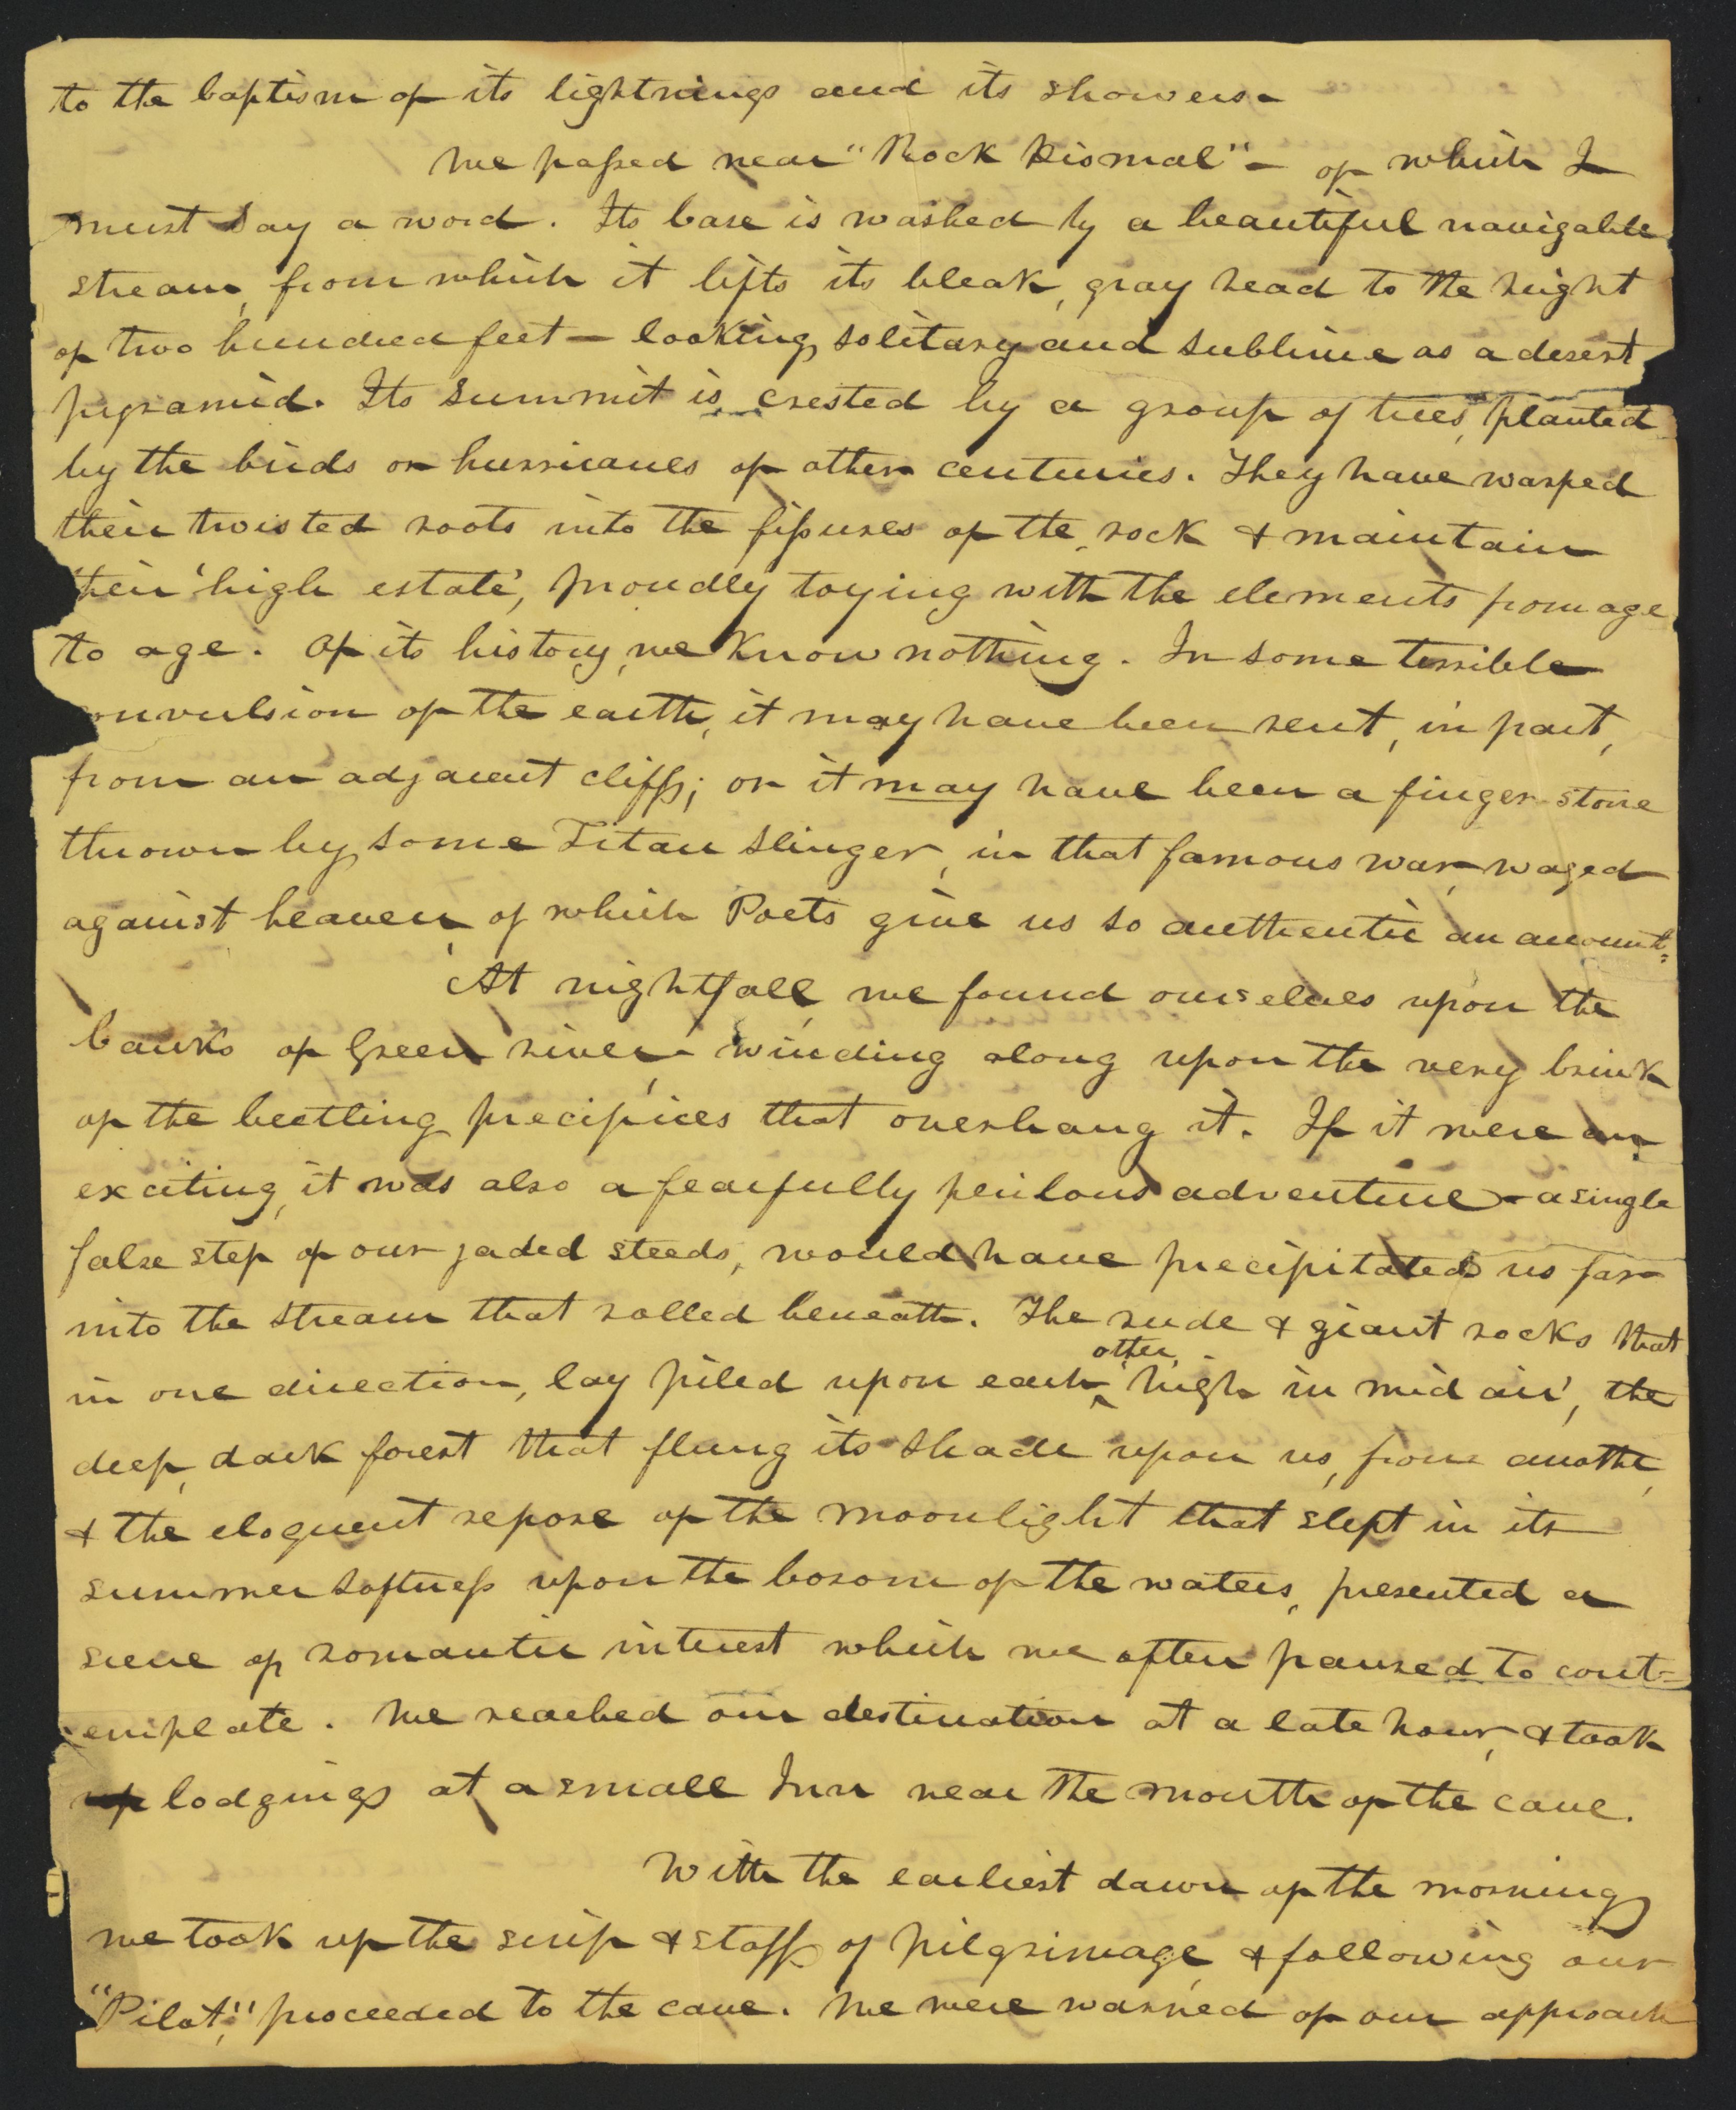 to the baptism of its lightnings and its showers-
We passed near "Rock Dismal" - of which I
must say a word. Its base is washed by a beautiful navigable
stream, from which it lifts its bleak, gray head to the hight
of two hundred feet - looking, solitary and sublime as a desert
pyramid. Its summit is crested by a group of trees, planted
by the birds or hurricanes of other centuries. They have warped
their twisted roots into the fissures of the rock & maintain
their 'high estate', proudly toying with the elements from age
to age. Of its history, we know nothing. In some terrible
convulsion of the earth, it may have been rent, in part,
from an adjacent cliff; or it may have been a finger-stone
thrown by some Titan slinger, in that famous war, waged
against heaven, of which Poets give us so authentic an account.
At nightfall, we found ourselves upon the
banks of Green river, winding along upon the very brink
of the beetling precipices that overhang it. If it were an
exciting, it was also a fearfully perilous adventure - a single
false step of our jaded steeds, would have precipitated us far
into the stream that rolled beneath. The rude & giant rocks that
in one direction, lay piled upon each other 'high in mid air', the
deep, dark forest that flung its shade upon us, from anothe,
& the eloquent repose of the moonlight that slept in its
summer softness upon the bosom of the waters, presented a
scene of romantic interest which we often paused to cont-
emplate. We reached our destination at a late hour, & took
up lodgings at a small Inn near the mouth of the cave.
With the earliest dawn of the morning
we took up the scrip & staff of pilgrimage, & following our
"Pilot," proceeded to the cave. We were warned of our approach